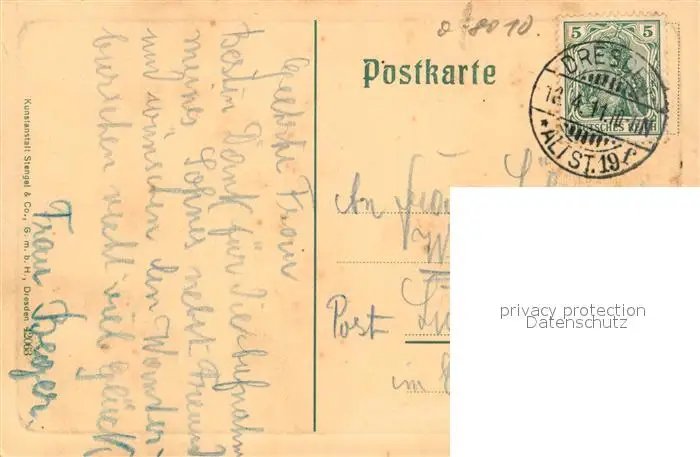 d 8010.
5 5
Postkarte
DRESDEN
18.4.11.
DEUTSCHES REICH
* ALTST. 19 f
An Frau
Post
im
privacy protection
Datenschutz
Geehrte Frau
Dank für Aufnahm
meines Sohnes nebst Freund
und wünschen den Wander-
burschen recht viel Glück
Frau Berger
Kunstanstalt Stengel & Co., G. m. b. H., Dresden 42063